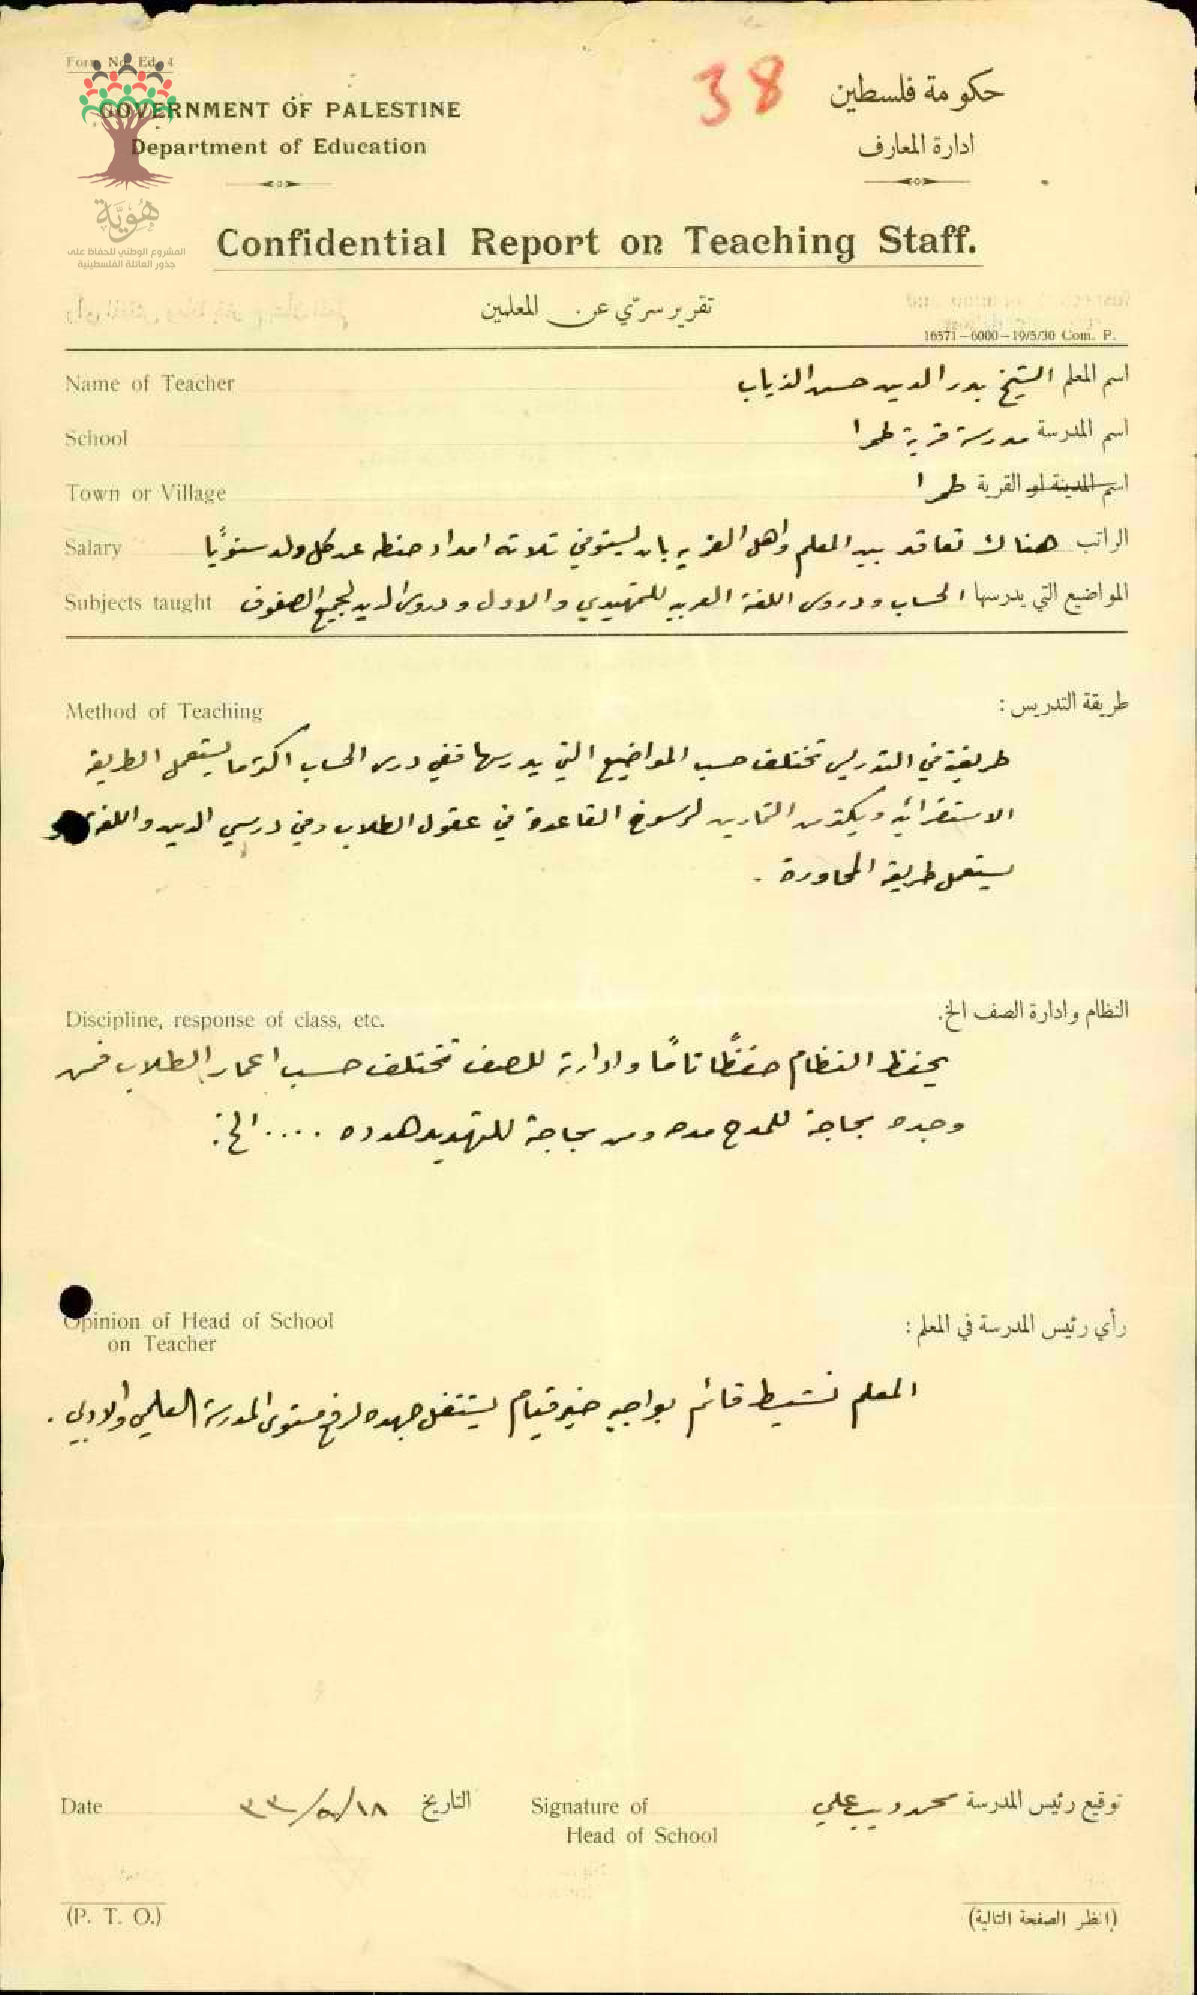 Form No. Ed. 4
38
GOVERNMENT OF PALESTINE
حكومة فلسطين
Department of Education
ادارة المعارف
هُوِيَّة
المشروع الوطني للحفاظ على
جذور العائلة الفلسطينية
Confidential Report on Teaching Staff.
تقرير سرّي عن المعلمين
16571—6000—19/5/30 Com. P.
Name of Teacher اسم المعلم الشيخ بدر الدين حسن الذياب
School اسم المدرسة مدرسة قرية طمرا
Town or Village اسم المدينة او القرية طمرا
Salary الراتب هناك تعاقد بين المعلم واهل القريه بان يستوفي ثلاثة امداد حنطه عن كل ولد سنويًا
Subjects taught المواضيع التي يدرسها الحساب ودروس اللغة العربيه للتمهيدي والاول ودروس الدين لجميع الصفوف
Method of Teaching
طريقة التدريس :
طريقته في التدريس تختلف حسب المواضيع التي يدرسها ففي درس الحساب اكثر ما يستعمل الطريقه
الاستقرائيه ويكثر من التمارين لرسوخ القاعدة في عقول الطلاب وفي درسي الدين واللغة
يستعمل طريقه المحاورة .
Discipline, response of class, etc.
النظام وادارة الصف الخ.
يحفظ النظام حفظًا تامًا وادارته للصف تختلف حسب اعمار الطلاب فمن
وجده بحاجة للمدح مدحه ومن بحاجة للتهديد هدده .... الخ .
Opinion of Head of School
on Teacher
رأي رئيس المدرسة في المعلم :
المعلم نشيط قائم بواجبه خير قيام يستنفل جهده لرفع مستوى المدرسة العلمي والادبي .
Date التاريخ ١٨/٥/٣٣
Signature of
Head of School
توقيع رئيس المدرسة محمد ديب علي
(P. T. O.)
(انظر الصفحة التالية)